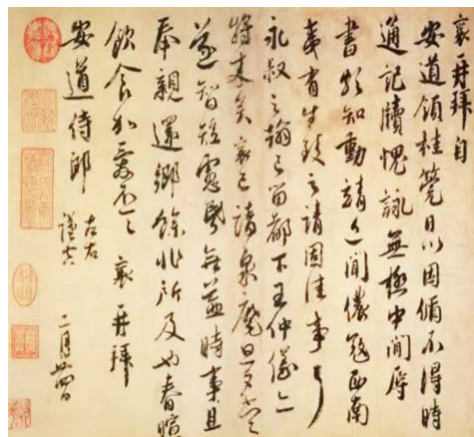 襄再拜自
安道領桂筦日以因循不得時
通記牘愧詠無極中間辱
書頗知動靖近聞儂寇西南
夷有生致之請固佳事耳
永叔之翰已留都下王仲儀亦
將來矣襄已請泉麾旦夕當
遂智短慮昏無益時事且
奉親還鄉餘非所及也春暄
飲食加愛不一一 襄再拜
安道侍郎 左右
謹空
二月廿四日